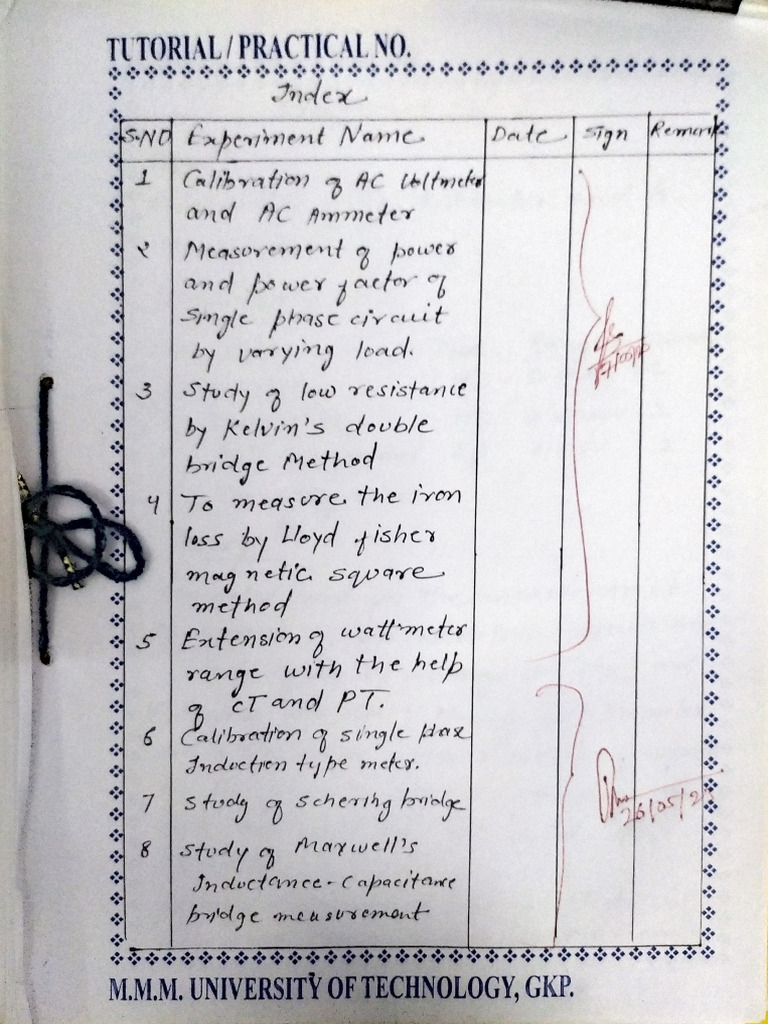 TUTORIAL / PRACTICAL NO.
Index
S.NO Experiment Name Date Sign Remark
1 Calibration of AC Voltmeter
and AC Ammeter
2 Measurement of power
and power factor of
Single phase circuit
by varying load.
3 Study of low resistance
by Kelvin's double
bridge Method
4 To measure the iron
loss by Lloyd fisher
magnetic square
method
5 Extension of wattmeter
range with the help
of CT and PT.
6 Calibration of single
Induction type meter.
7 Study of Schering bridge
26/05/25
8 Study of Maxwell's
Inductance-Capacitance
bridge measurement
M.M.M. UNIVERSITY OF TECHNOLOGY, GKP.